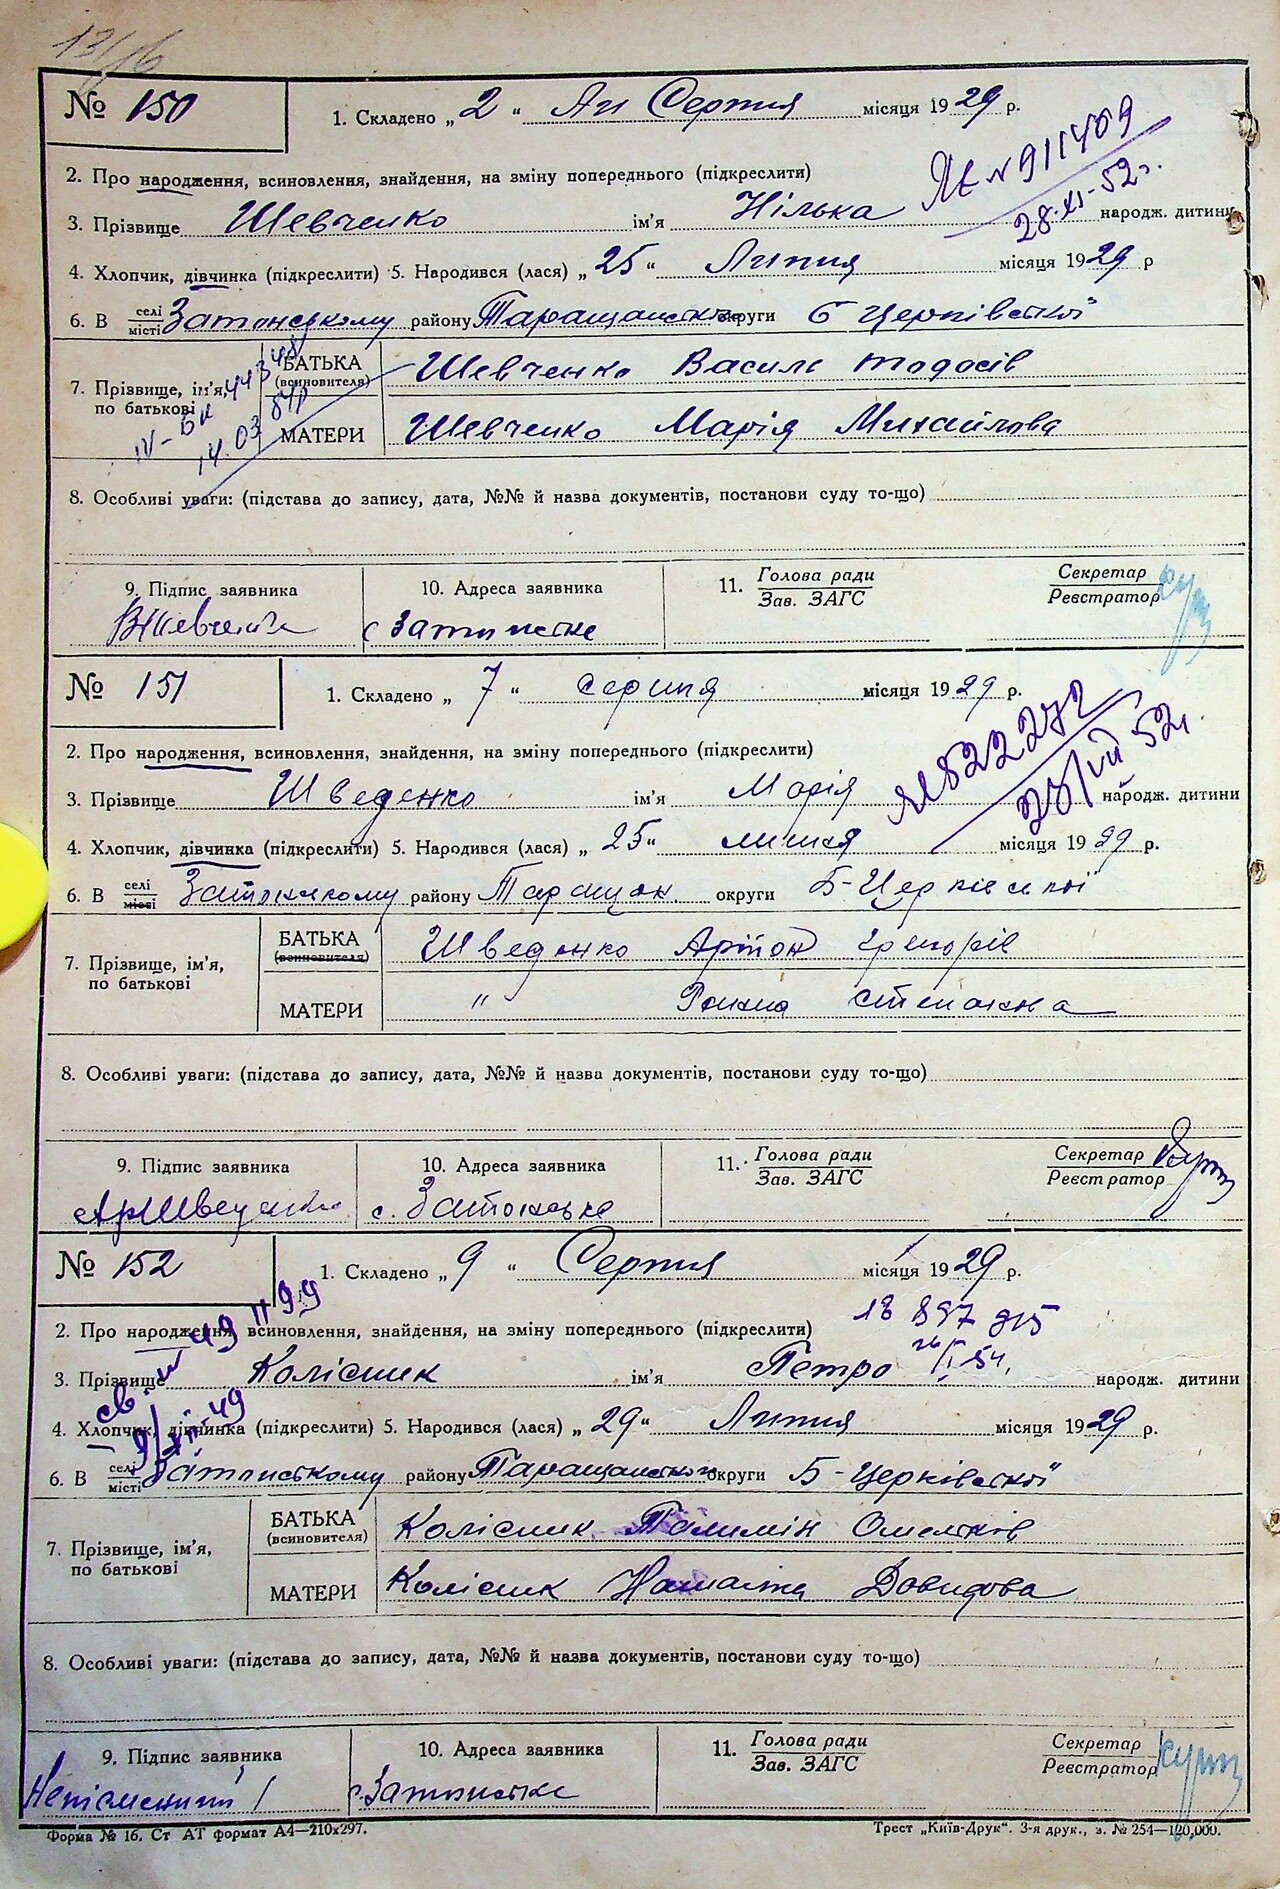 13/16
№ 150
1. Складено „2“ Серпня місяця 1929 р.
2. Про народження, всиновлення, знайдення, на зміну попереднього (підкреслити)
№ 911409
28-XI-52 г.
3. Прізвище Шевченко ім'я Нілька народж. дитини
4. Хлопчик, дівчинка (підкреслити) 5. Народився (лася) „25“ Липня місяця 1929 р
6. В селі/місті Затонському району Таращанської округи Б Церківської
7. Прізвище, ім'я, по батькові
БАТЬКА (всиновителя) Шевченко Василь Тодосів
МАТЕРИ Шевченко Марія Михайлова
8. Особливі уваги: (підстава до запису, дата, №№ й назва документів, постанови суду то-що)
9. Підпис заявника
10. Адреса заявника
11. Голова ради / Зав. ЗАГС
Секретар / Реєстратор
с Затонське
№ 151
1. Складено „7“ серпня місяця 1929 р.
2. Про народження, всиновлення, знайдення, на зміну попереднього (підкреслити)
822272
52
3. Прізвище Шведенко ім'я Марія народж. дитини
4. Хлопчик, дівчинка (підкреслити) 5. Народився (лася) „25“ липня місяця 1929 р.
6. В селі/місті Затонському району Таращан. округи Б-Церківської
7. Прізвище, ім'я, по батькові
БАТЬКА (всиновителя) Шведенко Артон Григорів
МАТЕРИ " Степанна
8. Особливі уваги: (підстава до запису, дата, №№ й назва документів, постанови суду то-що)
9. Підпис заявника
10. Адреса заявника
11. Голова ради / Зав. ЗАГС
Секретар / Реєстратор
с. Затонське
№ 152
1. Складено „9“ Серпня місяця 1929 р.
2. Про народження, всиновлення, знайдення, на зміну попереднього (підкреслити)
3. Прізвище Колісник ім'я Петро народж. дитини
4. Хлопчик, дівчинка (підкреслити) 5. Народився (лася) „29“ Липня місяця 1929 р.
6. В селі/місті Затонському району Таращанського округи Б-Церківської
7. Прізвище, ім'я, по батькові
БАТЬКА (всиновителя) Колісник Омельків
МАТЕРИ Колісник Наталка Давидова
8. Особливі уваги: (підстава до запису, дата, №№ й назва документів, постанови суду то-що)
9. Підпис заявника
10. Адреса заявника
11. Голова ради / Зав. ЗАГС
Секретар / Реєстратор
Неписьменний
с. Затонське
Форма № 16. Ст АТ формат А4—210х297.
Трест „Київ-Друк“. 3-я друк., з. № 254—120,000.